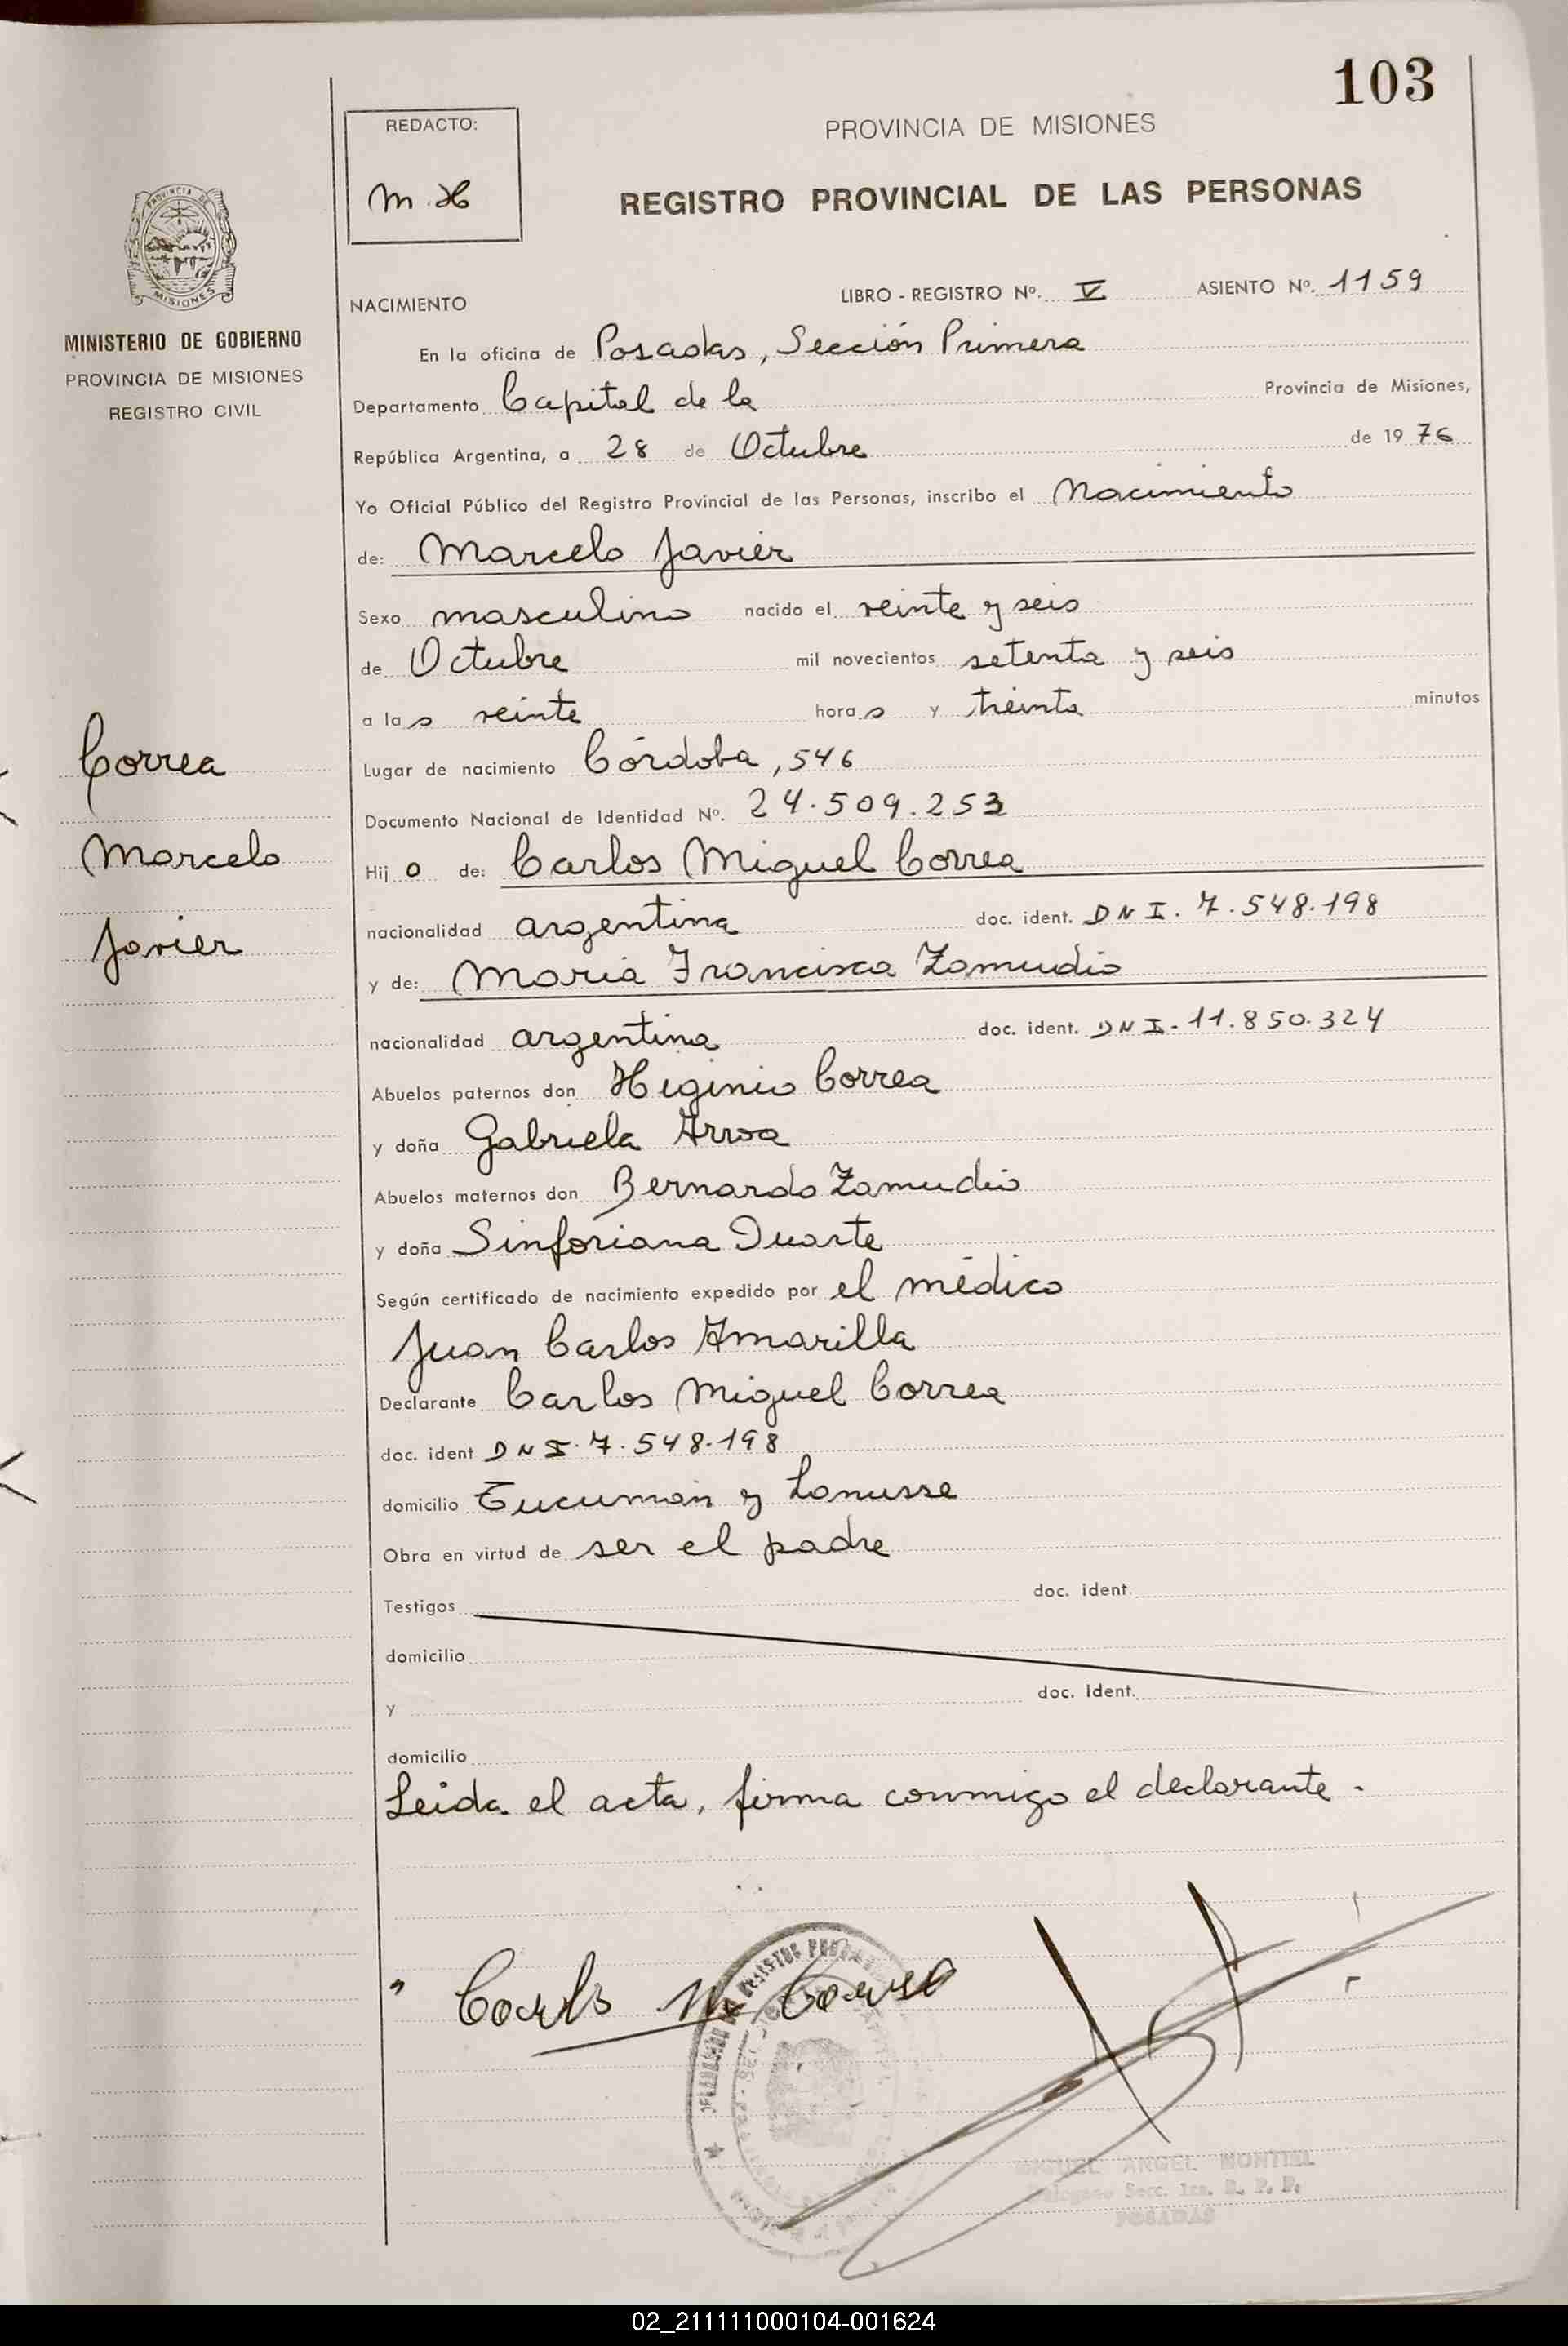 103
REDACTO:
M.H
PROVINCIA DE MISIONES
REGISTRO PROVINCIAL DE LAS PERSONAS
PROVINCIA DE
MISIONES
MINISTERIO DE GOBIERNO
PROVINCIA DE MISIONES
REGISTRO CIVIL
NACIMIENTO LIBRO - REGISTRO Nº. V ASIENTO Nº. 1159
En la oficina de Posadas, Sección Primera
Departamento Capital de la Provincia de Misiones,
República Argentina, a 28 de Octubre de 1976
Yo Oficial Público del Registro Provincial de las Personas, inscribo el Nacimiento
de: Marcelo Javier
Sexo masculino nacido el veinte y seis
de Octubre mil novecientos setenta y seis
a las veinte horas y treinta minutos
Correa
Marcelo
Javier
Lugar de nacimiento Córdoba, 546
Documento Nacional de Identidad Nº. 24.509.253
Hijo de: Carlos Miguel Correa
nacionalidad argentina doc. ident. DNI. 7.548.198
y de: Maria Francisca Zamudio
nacionalidad argentina doc. ident. DNI-11.850.324
Abuelos paternos don Higinio Correa
y doña Gabriela Arroa
Abuelos maternos don Bernardo Zamudio
y doña Sinforiana Duarte
Según certificado de nacimiento expedido por el médico
Juan Carlos Amarilla
Declarante Carlos Miguel Correa
doc. ident DNI. 7.548.198
domicilio Tucumán y Lanusse
Obra en virtud de ser el padre
Testigos doc. ident.
domicilio
y doc. ident.
domicilio
Leida el acta, firma conmigo el declarante.
Carlos M Correa
MIGUEL ANGEL MONTIEL
Delegado Secc. 1ra. R. P. P.
POSADAS
02_211111000104-001624